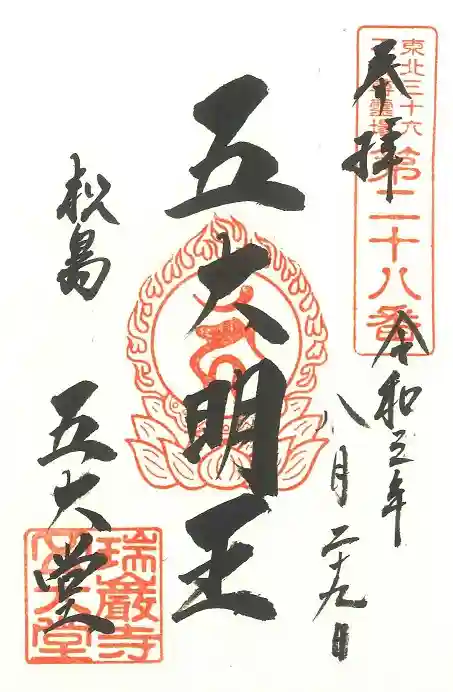 東北三十六
第二十八番
奉拝
令和五年
八月二十九日
五大明王
松島
五大堂
瑞巌寺
五大堂